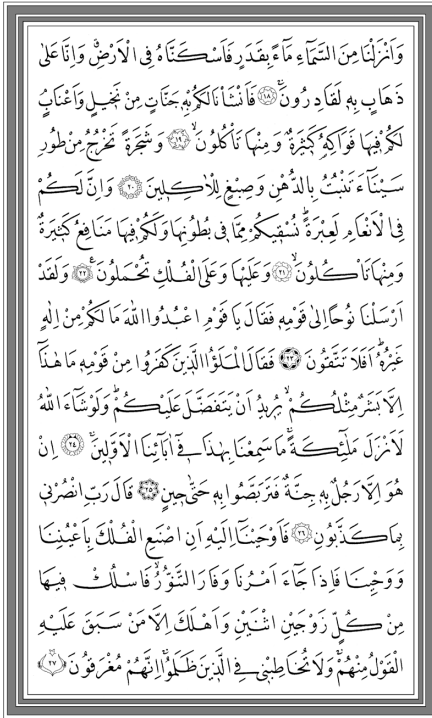 وَاَنْزَلْنَا مِنَ السَّمَٓاءِ مَٓاءً بِقَدَرٍ فَاَسْكَنَّاهُ فِي الْاَرْضِۗ وَاِنَّا عَلٰى
ذَهَابٍ بِهٖ لَقَادِرُونَۚ ﴿١٨﴾ فَاَنْشَأْنَا لَكُمْ بِهٖ جَنَّاتٍ مِنْ نَخٖيلٍ وَاَعْنَابٍۢ
لَكُمْ فٖيهَا فَوَاكِهُ كَثٖيرَةٌ وَمِنْهَا تَأْكُلُونَۙ ﴿١٩﴾ وَشَجَرَةً تَخْرُجُ مِنْ طُورِ
سَيْنَٓاءَ تَنْبُتُ بِالدُّهْنِ وَصِبْغٍ لِلْاٰكِلٖينَ ﴿٢٠﴾ وَاِنَّ لَكُمْ
فِي الْاَنْعَامِ لَعِبْرَةًۜ نُسْقٖيكُمْ مِمَّا فٖي بُطُونِهَا وَلَكُمْ فٖيهَا مَنَافِعُ كَثٖيرَةٌ
وَمِنْهَا تَأْكُلُونَۙ ﴿٢١﴾ وَعَلَيْهَا وَعَلَى الْفُلْكِ تُحْمَلُونَ۟ ﴿٢٢﴾ وَلَقَدْ
اَرْسَلْنَا نُوحًا اِلٰى قَوْمِهٖ فَقَالَ يَا قَوْمِ اعْبُدُوا اللّٰهَ مَا لَكُمْ مِنْ اِلٰهٍ
غَيْرُهُۜ اَفَلَا تَتَّقُونَ ﴿٢٣﴾ فَقَالَ الْمَلَؤُا الَّذٖينَ كَفَرُوا مِنْ قَوْمِهٖ مَا هٰذَٓا
اِلَّا بَشَرٌ مِثْلُكُمْۙ يُرٖيدُ اَنْ يَتَفَضَّلَ عَلَيْكُمْۜ وَلَوْ شَٓاءَ اللّٰهُ
لَاَنْزَلَ مَلٰٓئِكَةًۚ مَا سَمِعْنَا بِهٰذَا فٖٓي اٰبَٓائِنَا الْاَوَّلٖينَۚ ﴿٢٤﴾ اِنْ
هُوَ اِلَّا رَجُلٌ بِهٖ جِنَّةٌ فَتَرَبَّصُوا بِهٖ حَتّٰى حٖينٍ ﴿٢٥﴾ قَالَ رَبِّ انْصُرْنٖي
بِمَا كَذَّبُونِ ﴿٢٦﴾ فَاَوْحَيْنَٓا اِلَيْهِ اَنِ اصْنَعِ الْفُلْكَ بِاَعْيُنِنَا
وَوَحْيِنَا فَاِذَا جَٓاءَ اَمْرُنَا وَفَارَ التَّنُّورُۙ فَاسْلُكْ فٖيهَا
مِنْ كُلٍّ زَوْجَيْنِ اثْنَيْنِ وَاَهْلَكَ اِلَّا مَنْ سَبَقَ عَلَيْهِ
الْقَوْلُ مِنْهُمْۚ وَلَا تُخَاطِبْنٖي فِي الَّذٖينَ ظَلَمُواۚ اِنَّهُمْ مُغْرَقُونَ ﴿٢٧﴾